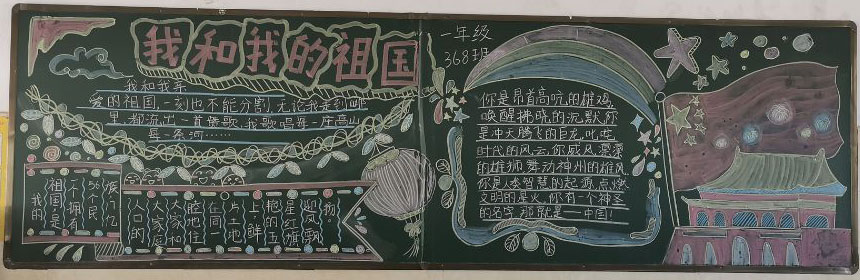 我和我的祖国
一年级
368班
我和我亲
爱的祖国,一刻也不能分割,无论我走到哪
里,都流出一首赞歌,我歌唱每一座高山
每一条河……
你是昂首高吭的雄鸡
唤醒拂晓的沉默,你
是冲天腾飞的巨龙,叱咤
时代的风云,你威风凛凛
的雄狮舞动神州的雄风
你是本智慧的起源,点燃
文明的星火,你有一个神圣
的名字,那就是——中国!
我的
祖国是
一个拥有
56个民
族
亿
人口的
大家庭
大家和
睦地住
在同一
片土地
上,鲜
艳的五
星红旗
迎风飘
扬。